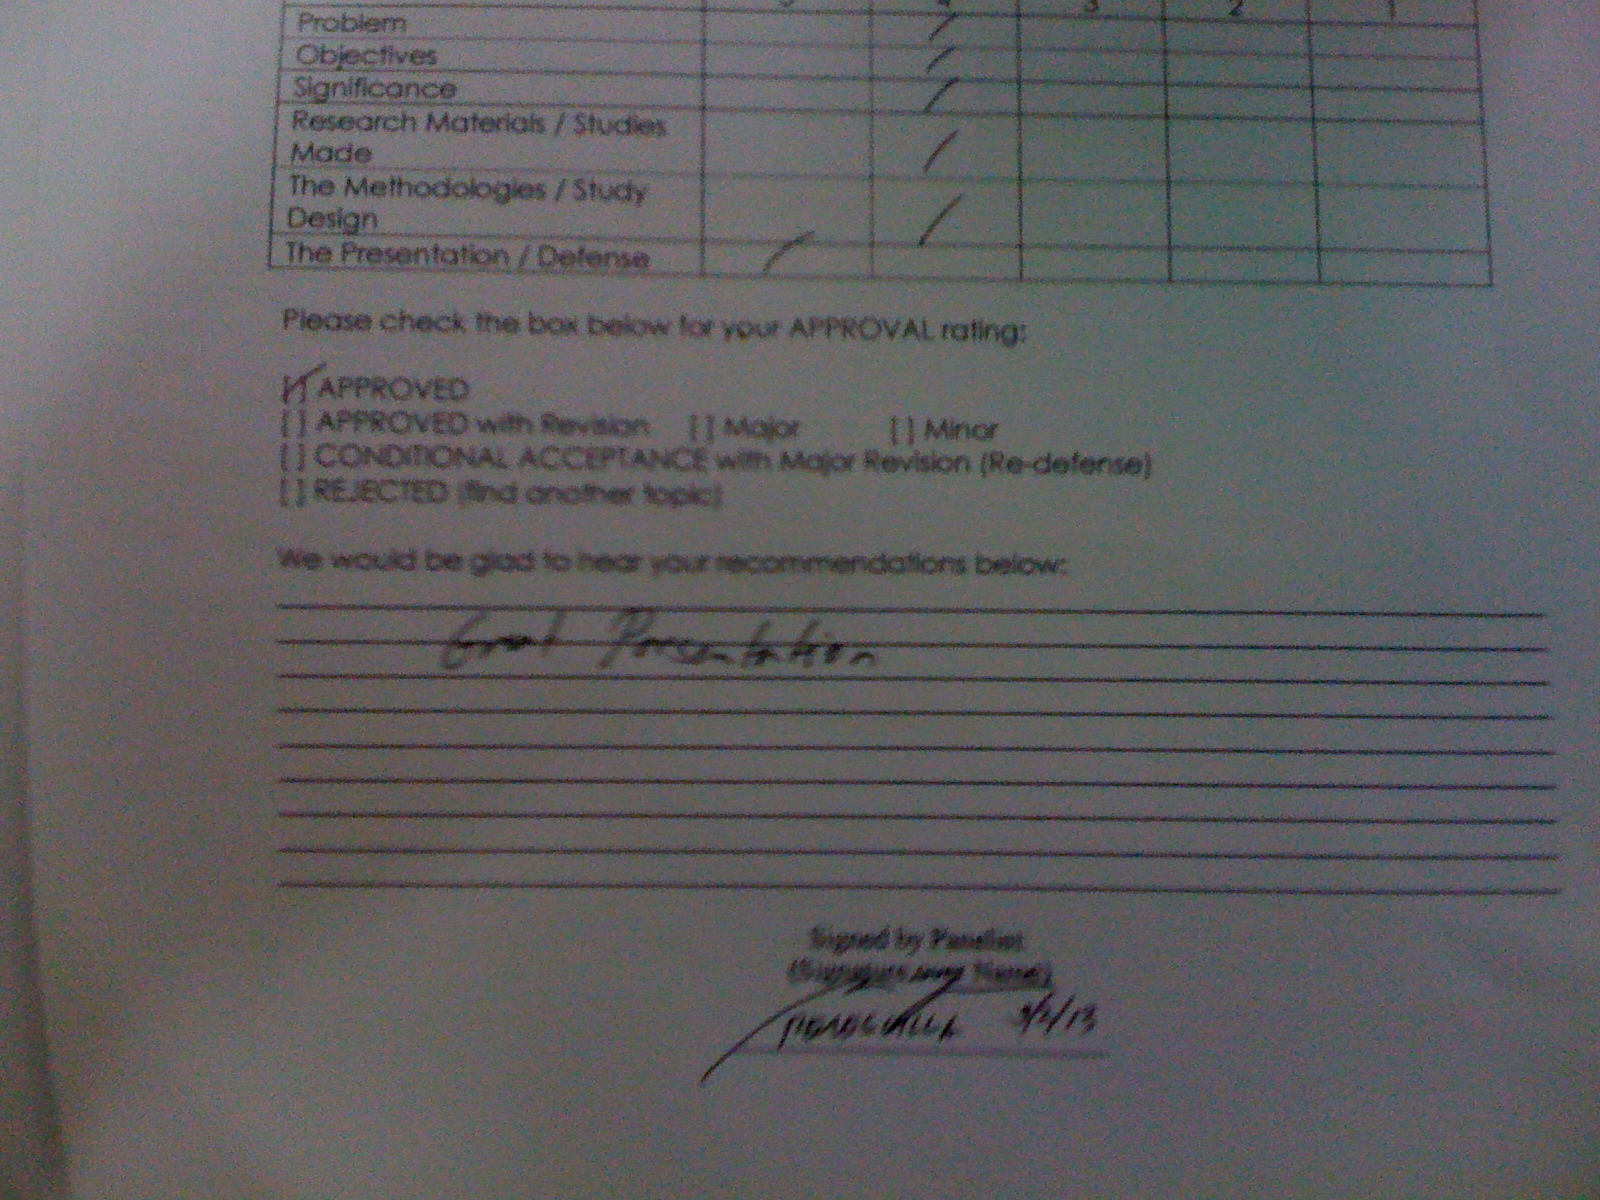 3 2 1
Problem /
Objectives /
Significance /
Research Materials / Studies
Made /
The Methodologies / Study
Design /
The Presentation / Defense /
Please check the box below for your APPROVAL rating:
[/] APPROVED
[ ] APPROVED with Revision [ ] Major [ ] Minor
[ ] CONDITIONAL ACCEPTANCE with Major Revision (Re-defense)
[ ] REJECTED (find another topic)
We would be glad to hear your recommendations below:
Great Presentation
Signed by Panelist
(Signature Name)